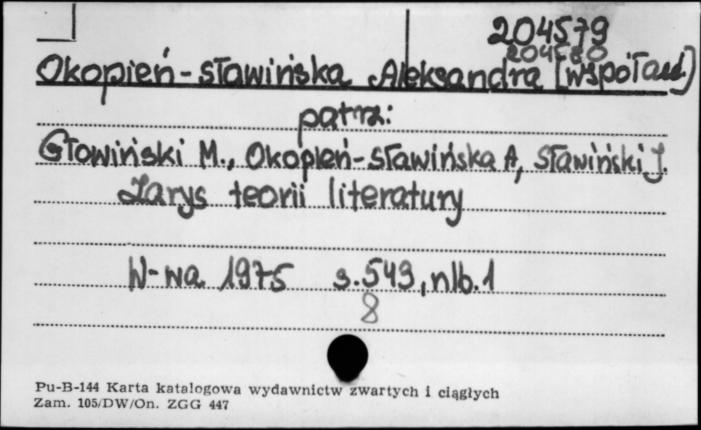 204579
204580
Okopień-Sławińska Aleksandra [współaut.]
patrz:
Głowiński M., Okopień-Sławińska A, Sławiński J.
Zarys teorii literatury
W-wa 1975 s. 549, nlb. 1
8
Pu-B-144 Karta katalogowa wydawnictw zwartych i ciągłych
Zam. 105/DW/On. ZGG 447